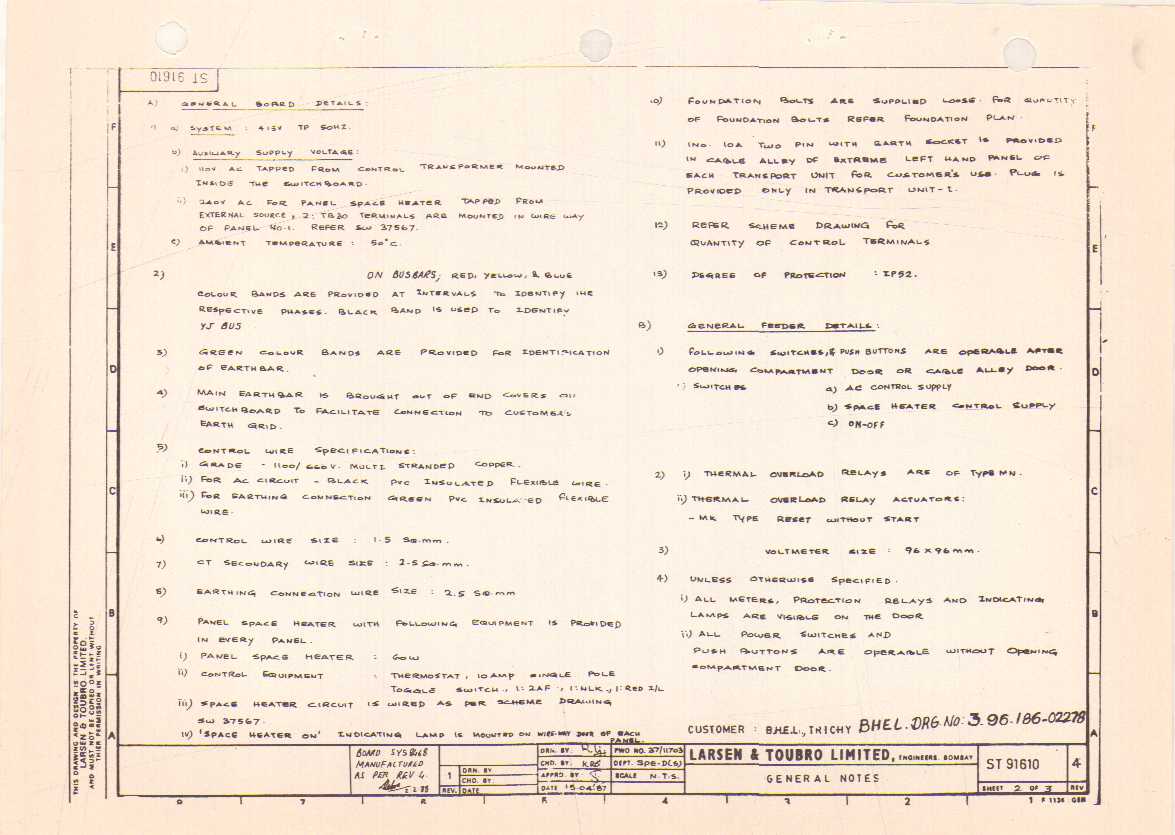 ST 91610
A) GENERAL BOARD DETAILS:
1) a) SYSTEM : 415V TP 50HZ.
b) AUXILIARY SUPPLY VOLTAGE:
i) 110V AC TAPPED FROM CONTROL TRANSFORMER MOUNTED
INSIDE THE SWITCHBOARD.
ii) 240V AC FOR PANEL SPACE HEATER TAPPED FROM
EXTERNAL SOURCE, 2: TB20 TERMINALS ARE MOUNTED IN WIRE WAY
OF PANEL NO-1. REFER SW 37567.
c) AMBIENT TEMPERATURE : 50°C.
2) ON BUSBARS, RED, YELLOW, & BLUE
COLOUR BANDS ARE PROVIDED AT INTERVALS TO IDENTIFY THE
RESPECTIVE PHASES. BLACK BAND IS USED TO IDENTIFY
BUS
3) GREEN COLOUR BANDS ARE PROVIDED FOR IDENTIFICATION
OF EARTHBAR.
4) MAIN EARTHBAR IS BROUGHT OUT OF END COVERS ON
SWITCHBOARD TO FACILITATE CONNECTION TO CUSTOMER'S
EARTH GRID.
5) CONTROL WIRE SPECIFICATIONS:
i) GRADE - 1100/660V. MULTI STRANDED COPPER.
ii) FOR AC CIRCUIT - BLACK PVC INSULATED FLEXIBLE WIRE.
iii) FOR EARTHING CONNECTION GREEN PVC INSULATED FLEXIBLE
WIRE.
6) CONTROL WIRE SIZE : 1.5 SQ.mm.
7) CT SECONDARY WIRE SIZE : 2.5 SQ.mm.
8) EARTHING CONNECTION WIRE SIZE : 2.5 SQ.mm
9) PANEL SPACE HEATER WITH FOLLOWING EQUIPMENT IS PROVIDED
IN EVERY PANEL.
i) PANEL SPACE HEATER : 60W
ii) CONTROL EQUIPMENT : THERMOSTAT, 10AMP SINGLE POLE
TOGGLE SWITCH, 1:2AF, 1:NLK, 1:RED I/L
iii) SPACE HEATER CIRCUIT IS WIRED AS PER SCHEME DRAWING
SW 37567.
iv) 'SPACE HEATER ON' INDICATING LAMP IS MOUNTED ON WIRE-WAY DOOR OF EACH
PANEL.
10) FOUNDATION BOLTS ARE SUPPLIED LOOSE. FOR QUANTITY
OF FOUNDATION BOLTS REFER FOUNDATION PLAN.
11) 1NO. 10A TWO PIN WITH EARTH SOCKET IS PROVIDED
IN CABLE ALLEY OF EXTREME LEFT HAND PANEL OF
EACH TRANSPORT UNIT FOR CUSTOMER'S USE. PLUG IS
PROVIDED ONLY IN TRANSPORT UNIT-1.
12) REFER SCHEME DRAWING FOR
QUANTITY OF CONTROL TERMINALS
13) DEGREE OF PROTECTION : IP52.
B) GENERAL FEEDER DETAILS:
1) FOLLOWING SWITCHES, & PUSH BUTTONS ARE OPERABLE AFTER
OPENING COMPARTMENT DOOR OR CABLE ALLEY DOOR.
i) SWITCHES a) AC CONTROL SUPPLY
b) SPACE HEATER CONTROL SUPPLY
c) ON-OFF
2) i) THERMAL OVERLOAD RELAYS ARE OF TYPE MN.
ii) THERMAL OVERLOAD RELAY ACTUATORS:
- MK TYPE RESET WITHOUT START
3) VOLTMETER SIZE : 96 X 96 mm.
4) UNLESS OTHERWISE SPECIFIED.
i) ALL METERS, PROTECTION RELAYS AND INDICATING
LAMPS ARE VISIBLE ON THE DOOR
ii) ALL POWER SWITCHES AND
PUSH BUTTONS ARE OPERABLE WITHOUT OPENING
COMPARTMENT DOOR.
CUSTOMER : B.H.E.L., TRICHY BHEL. DRG. NO: 3.96.186-02278
THIS DRAWING AND DESIGN IS THE PROPERTY OF
LARSEN & TOUBRO LIMITED.
AND MUST NOT BE COPIED OR LENT WITHOUT
THEIR PERMISSION IN WRITING
BOARD SYS 8468
MANUFACTURED
AS PER REV 4.
1 DRN. BY
CHD. BY:
REV. DATE
DRN. BY:
CHD. BY: KRS
APPRD. BY
DATE 15-04-87
PWO NO. 37/11703
DEPT. SPE-D(S)
SCALE N.T.S.
LARSEN & TOUBRO LIMITED, ENGINEERS. BOMBAY
GENERAL NOTES
ST 91610
4
SHEET 2 OF 3 REV
F
E
D
C
B
A
F
E
D
C
B
A
7 6 5 4 3 2 1 F 1136 GEN